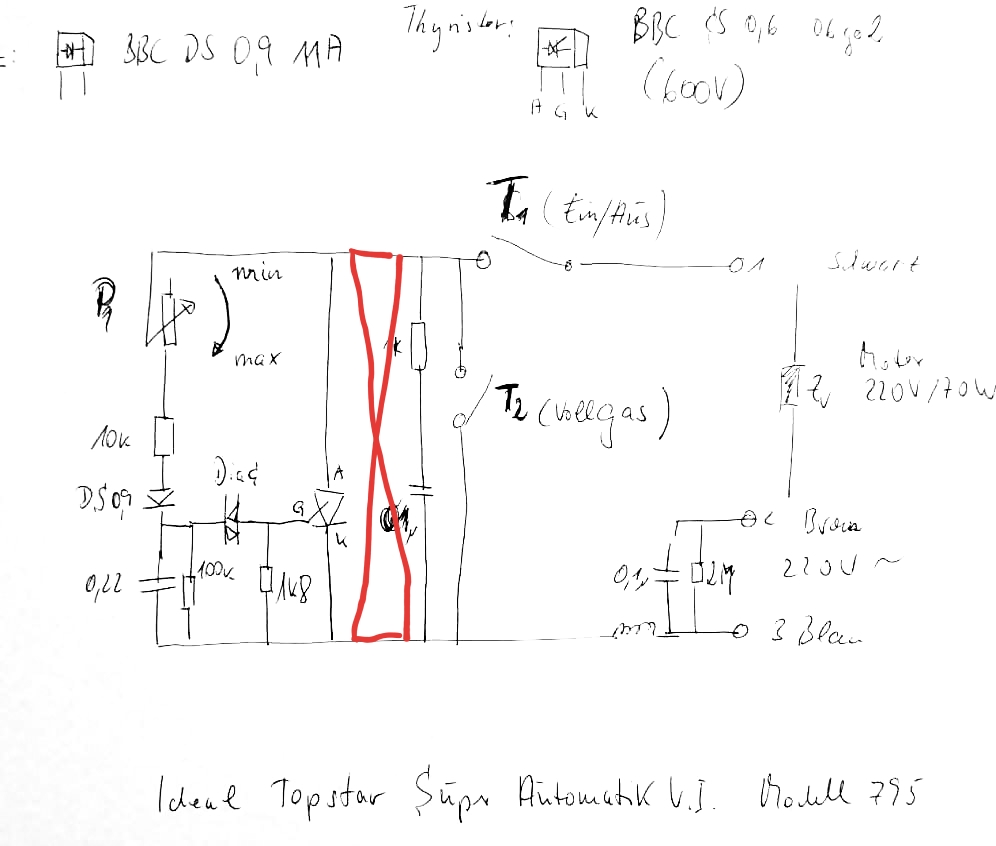 BBC DS 0,9 11A
Thyristor:
BBC CS 0,6
(600V)
A G K
T1 (Ein/Aus)
P1
min
max
1
Schwarz
1k
Motor
220V/70W
T2 (Vollgas)
10k
DS09
Diac
A
G
K
0,22
100k
1k8
0,1µ
2M
2 Braun
220V ~
3 Blau
Ideal Topstar Super Automatik V.I. Modell 795